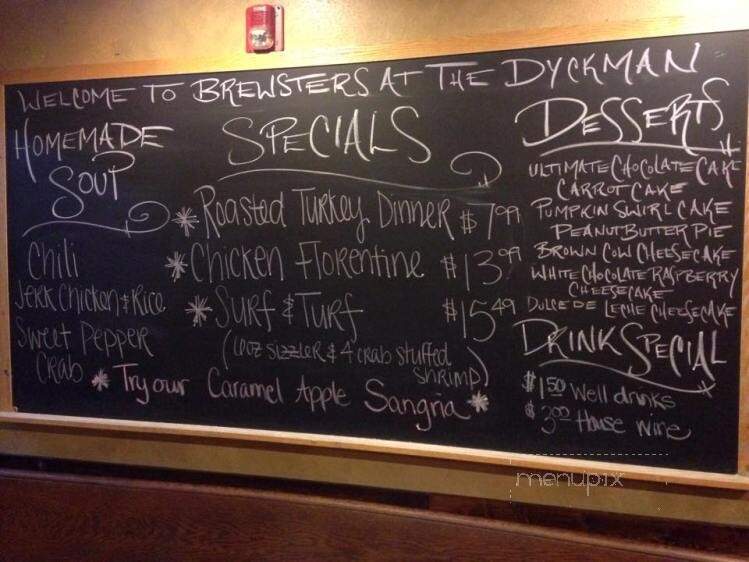 WELCOME TO BREWSTERS AT THE DYCKMAN
HOMEMADE
SOUP
Chili
Jerk Chicken & Rice
Sweet Pepper
Crab
SPECIALS
* Roasted Turkey Dinner $7.99
* Chicken Florentine $13.99
* Surf & Turf $15.49
(10oz SIZZLER & 4 CRAB STUFFED
SHRIMP)
* Try our Caramel Apple Sangria *
DESSERTS
ULTIMATE CHOCOLATE CAKE
CARROT CAKE
PUMPKIN SWIRL CAKE
PEANUT BUTTER PIE
BROWN COW CHEESECAKE
WHITE CHOCOLATE RASPBERRY
CHEESECAKE
DULCE DE LECHE CHEESECAKE
DRINK SPECIAL
$1.50 Well drinks
$3.00 House wine
menupix